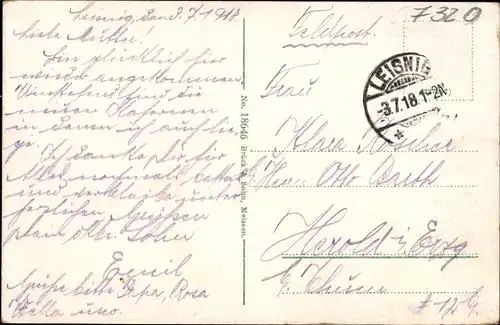 Leisnig, den 3.7.1918
Liebe Mutter!
Bin glücklich hier
wieder angekommen.
sind die
neuen Kasernen
in denen ich auch lie-
ge.
Ich danke dir für
Alles nochmals
und
herzlichen Grüßen
dein Sohn
Emil
Grüße bitte Papa, Rosa
Hella usw.
No. 18646 Brück & Sohn, Meissen.
Feldpost.
7320
LEISNIG
-3.7.18.1-2N
Frau
Klara
b. Herrn Otto
Herold i. Erzg
b. Thum
# 12 G.